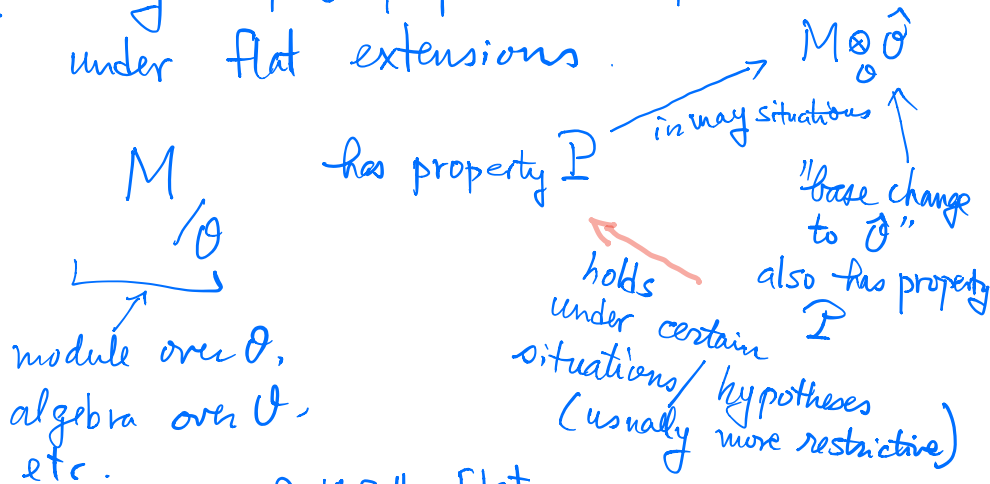 under flat extensions.
M ⊗ Ô
O
in may situations
M
/O
has property P
"base change
to Ô"
also has property
P
holds
under certain
situations / hypotheses
(usually more restrictive)
module over O,
algebra over O,
etc.
flat